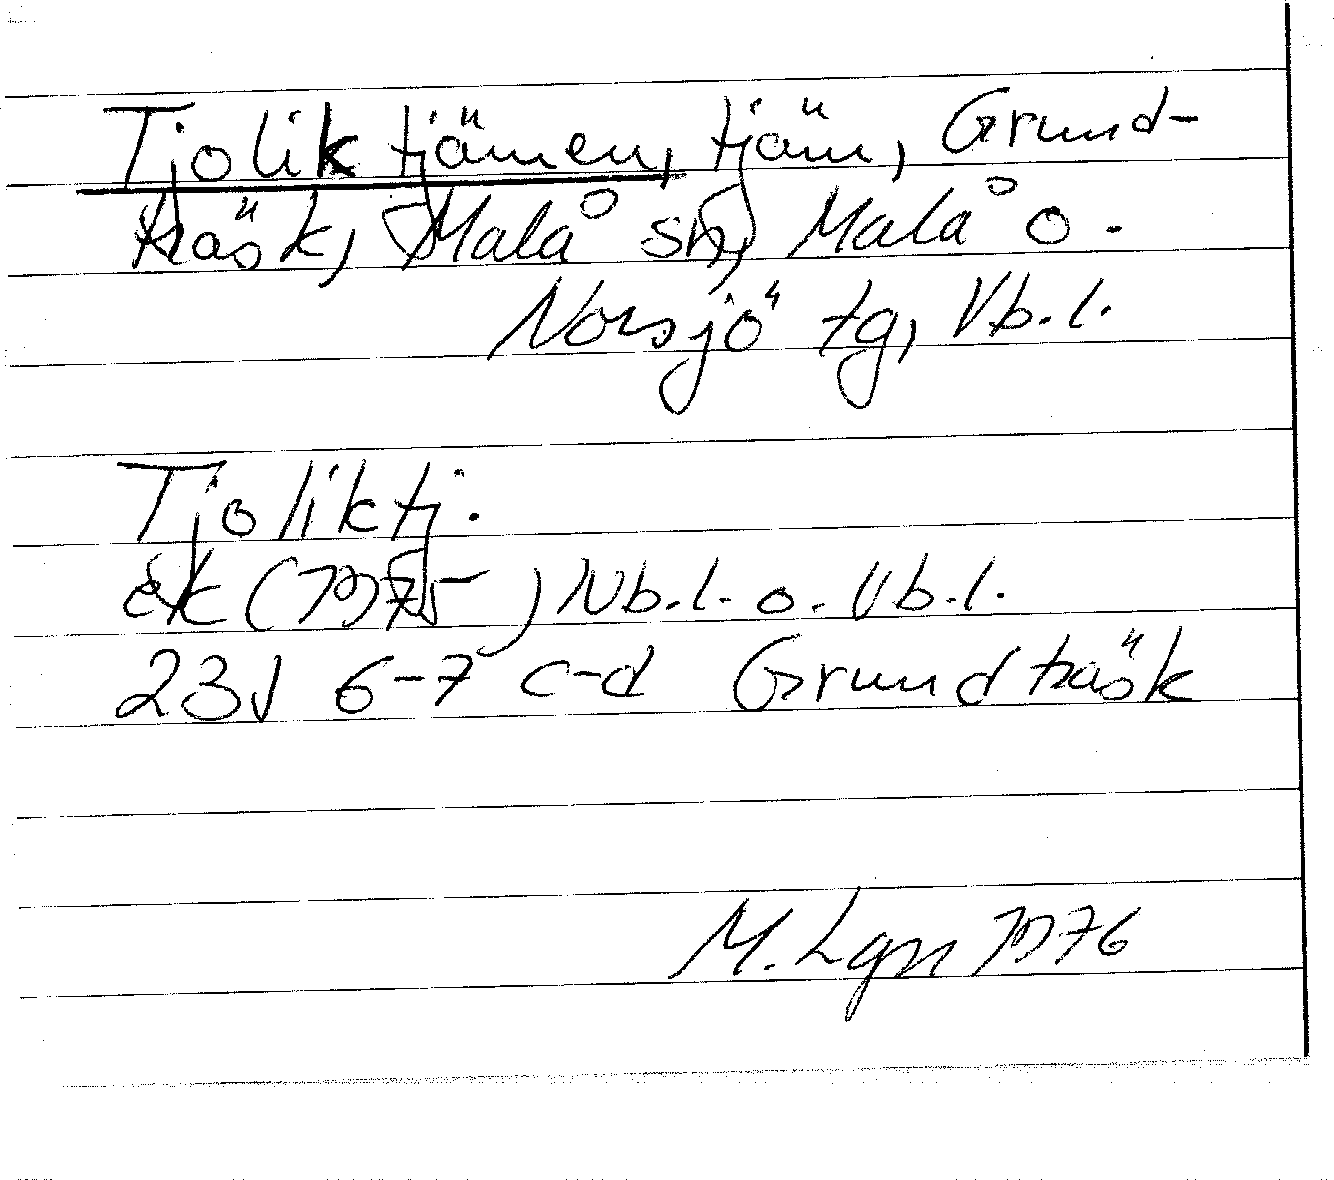 Tjoliktjärnen, tjärn, Grund-
träsk, Malå sn, Malå o.
Norsjö tg, Vb.l.
Tjoliktj.
ek (1975) Nb.l. o. Vb.l.
23J 6-7 c-d Grundträsk
M. Lgn 1976